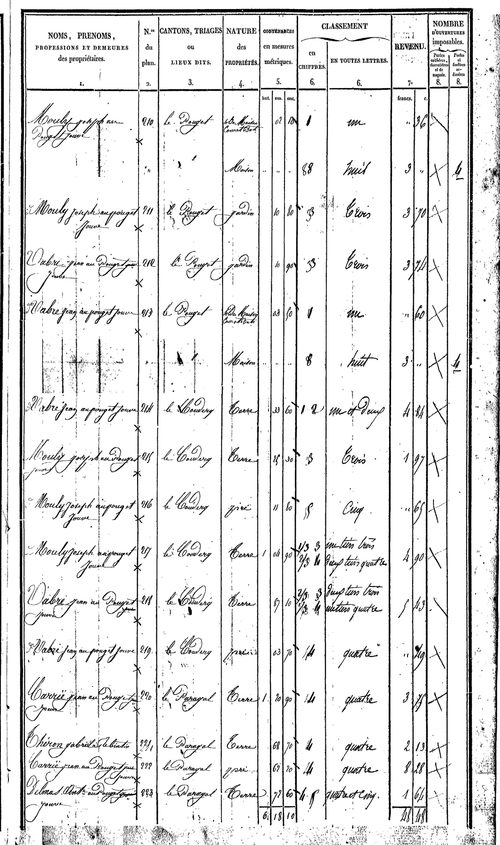 NOMS, PRÉNOMS, PROFESSIONS ET DEMEURES des propriétaires. N.os du plan. CANTONS, TRIAGES ou LIEUX DITS. NATURE des PROPRIÉTÉS. CONTENANCES en mesures métriques. CLASSEMENT en CHIFFRES. EN TOUTES LETTRES. REVENU. NOMBRE D'OUVERTURES imposables.
1. 2. 3. 4. 5. 6. 6. 7. 8. 8.
hect. francs. c.
Mouly joseph au Pouget jouve 210 le Pouget 02 10 1 un " 36
Maison 8 huit 3 " 4
Mouly joseph au pouget jouve 211 le Pouget jardin 10 80 3 Trois 3 70
Vabre jean au Pouget jouve 212 le Pouget jardin 10 90 3 Trois 3 74
Vabre jean au pouget jouve 213 le Pouget 03 50 1 un " 60
Maison 8 huit 3 " 4
Vabre jean au pouget jouve 214 le Couderq Terre 33 60 1 2 un et deux 4 84
Mouly joseph au Pouget jouve 215 le Couderq Terre 25 30 3 Trois 1 97
Mouly joseph au pouget jouve 216 le Couderq pré 11 80 5 Cinq " 65
Mouly joseph au pouget jouve 217 le Couderq Terre 1 04 90 1/3 3 un tiers trois
2/3 4 deux tiers quatre 4 90
Vabre jean au Pouget jouve 218 le Couderq Terre 87 10 2/3 3 deux tiers trois
1/3 4 un tiers quatre 5 43
Vabre jean au pouget jouve 219 le Couderq 03 70 4 quatre "
Carrié jean au Pouget jouve 220 le Paragal Terre 1 20 90 4 quatre 3 75
Théron gabriel 221 le Paragal Terre 68 70 4 quatre 2 13
Carrié jean au Pouget jouve 222 le Paragal pré 4 quatre 8 28
Delmas au Pouget jouve 223 le Paragal Terre 72 60 4 5 quatre et cinq 1 64
6 18 10 48 48